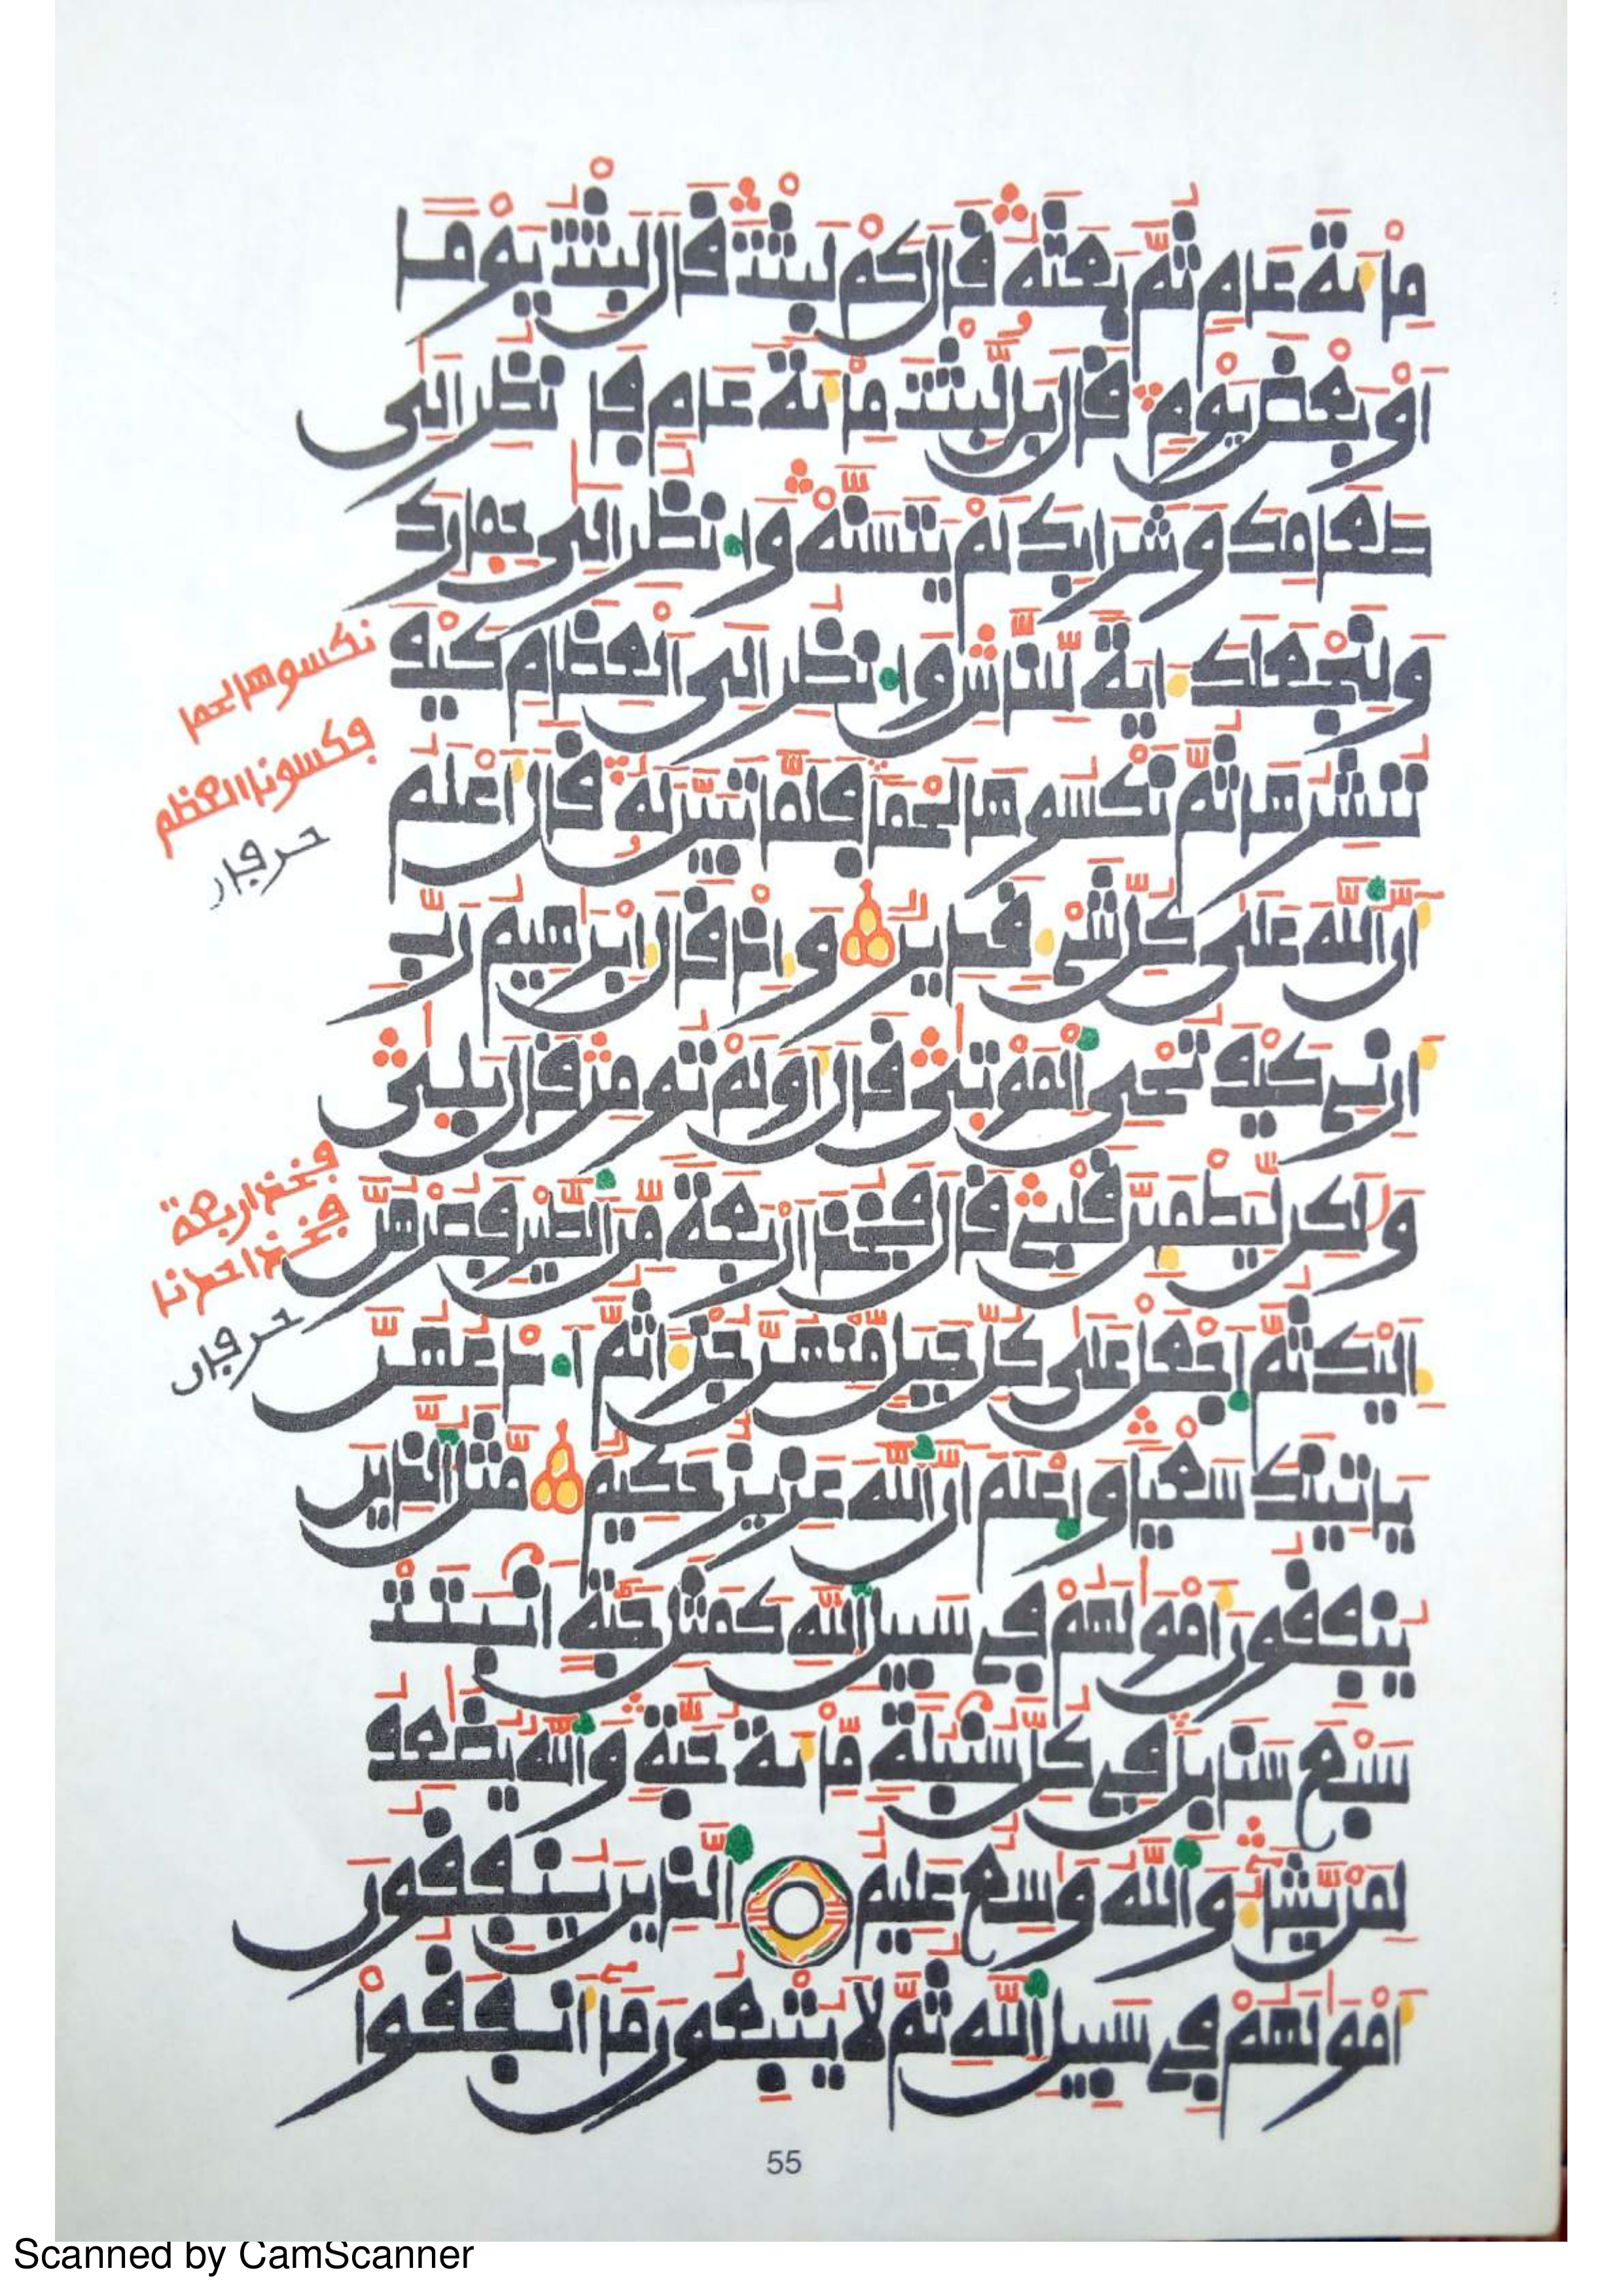 مِاْئَةَ عَامٍ ثُمَّ بَعَثَهُ قَالَ كَمْ لَبِثْتَ قَالَ لَبِثْتُ يَوْمًا
اَوْ بَعْضَ يَوْمٍ قَالَ بَل لَّبِثْتَ مِاْئَةَ عَامٍ فَا نظُرِ اِلَى
طَعَامِكَ وَشَرَابِكَ لَمْ يَتَسَنَّهْ وَانظُرِ اِلَى حِمَارِكَ
وَلِنَجْعَلَكَ ءَايَةً لِّلنَّاسِ وَانظُرِ اِلَى الْعِظَامِ كَيْفَ
نُنشِرُهَا ثُمَّ نَكْسُوهَا لَحْمًا فَلَمَّا تَبَيَّنَ لَهُ قَالَ أَعْلَمُ
أَنَّ اللَّهَ عَلَى كُلِّ شَيْءٍ قَدِيرٌ وَإِذْ قَالَ إِبْرَاهِيمُ رَبِّ
أَرِنِي كَيْفَ تُحْيِ الْمَوْتَى قَالَ أَوَلَمْ تُومِن قَالَ بَلَى
وَلَكِن لِّيَطْمَئِنَّ قَلْبِي قَالَ فَخُذَ ارْبَعَةً مِّنَ الطَّيْرِ فَصُرْهُنَّ
إِلَيْكَ ثُمَّ اجْعَلْ عَلَى كُلِّ جَبَلٍ مِّنْهُنَّ جُزْءًا ثُمَّ ادْعُهُنَّ
يَاتِينَكَ سَعْيًا وَاعْلَمَ أَنَّ اللَّهَ عَزِيزٌ حَكِيمٌ مَّثَلُ الَّذِينَ
يُنفِقُونَ أَمْوَلَهُمْ فِي سَبِيلِ اللَّهِ كَمَثَلِ حَبَّةٍ اَنبَتَتْ
سَبْعَ سَنَابِلَ فِي كُلِّ سُنبُلَةٍ مِّاْئَةُ حَبَّةٍ وَاللَّهُ يُضَعِفُ
لِمَن يَّشَاءُ وَاللَّهُ وَسِعٌ عَلِيمٌ الَّذِينَ يُنفِقُونَ
أَمْوَلَهُمْ فِي سَبِيلِ اللَّهِ ثُمَّ لَا يُتْبِعُونَ مَا أَنفَقُواْ
نكسوها لحما
فكسونا العظم
حرفان
فخذ اربعة
فخذ احدنا
حرفان
55
Scanned by CamScanner